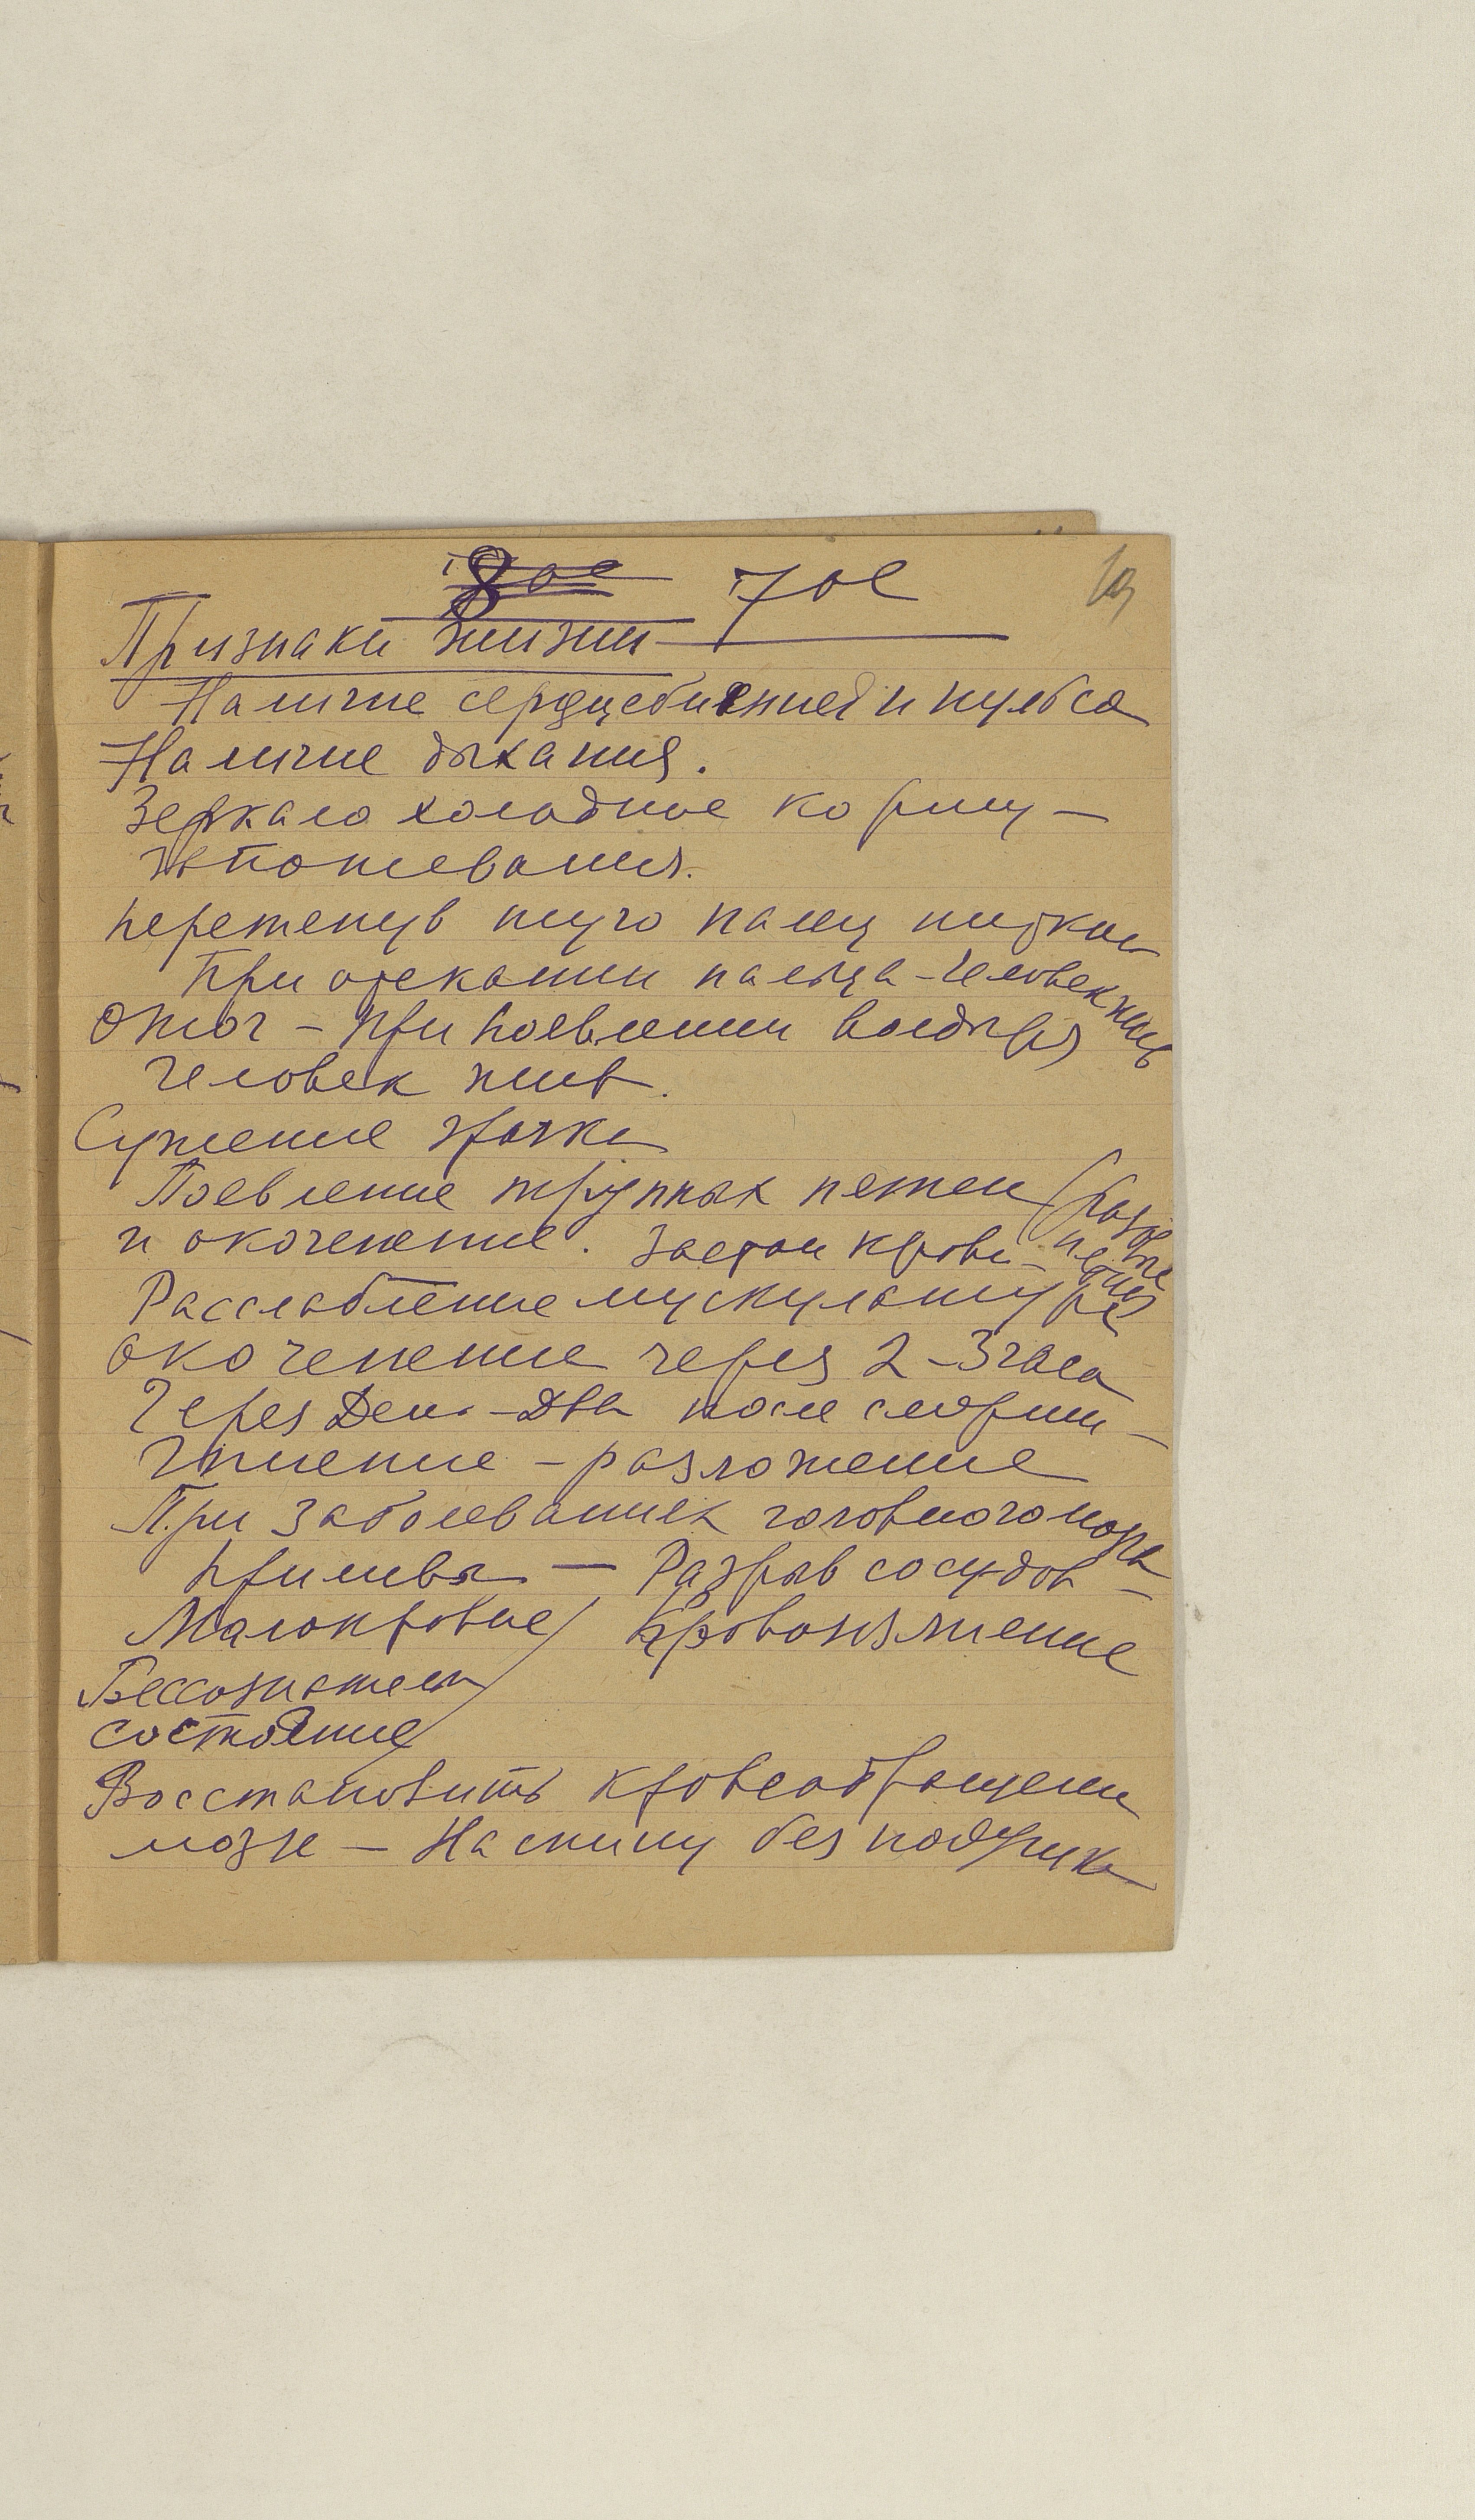 7ое
Признаки жизни
Наличие сердцебиений и пульса
Наличие дыхания.
Зеркало холодное ко рту –
запотевания.
перетянув туго палец ниткой
При отекании пальца – человек жив
Ожог – при поевлении волдыря
человек жив.
Сужение зрачка
Поевление трупных петен
и окоченение. Застои крови –
Расслабление мускулатуры
окоченение через 2–3 часа
Через День–Два после смерти –
Гниение – разложение
При заболеваниях головного мозга
приливы – Разрыв сосудов –
Малокровие / Кровоизлияние
Бессознательн
состояние
Восстановить кровеобращени
мозга – На спину без подушки